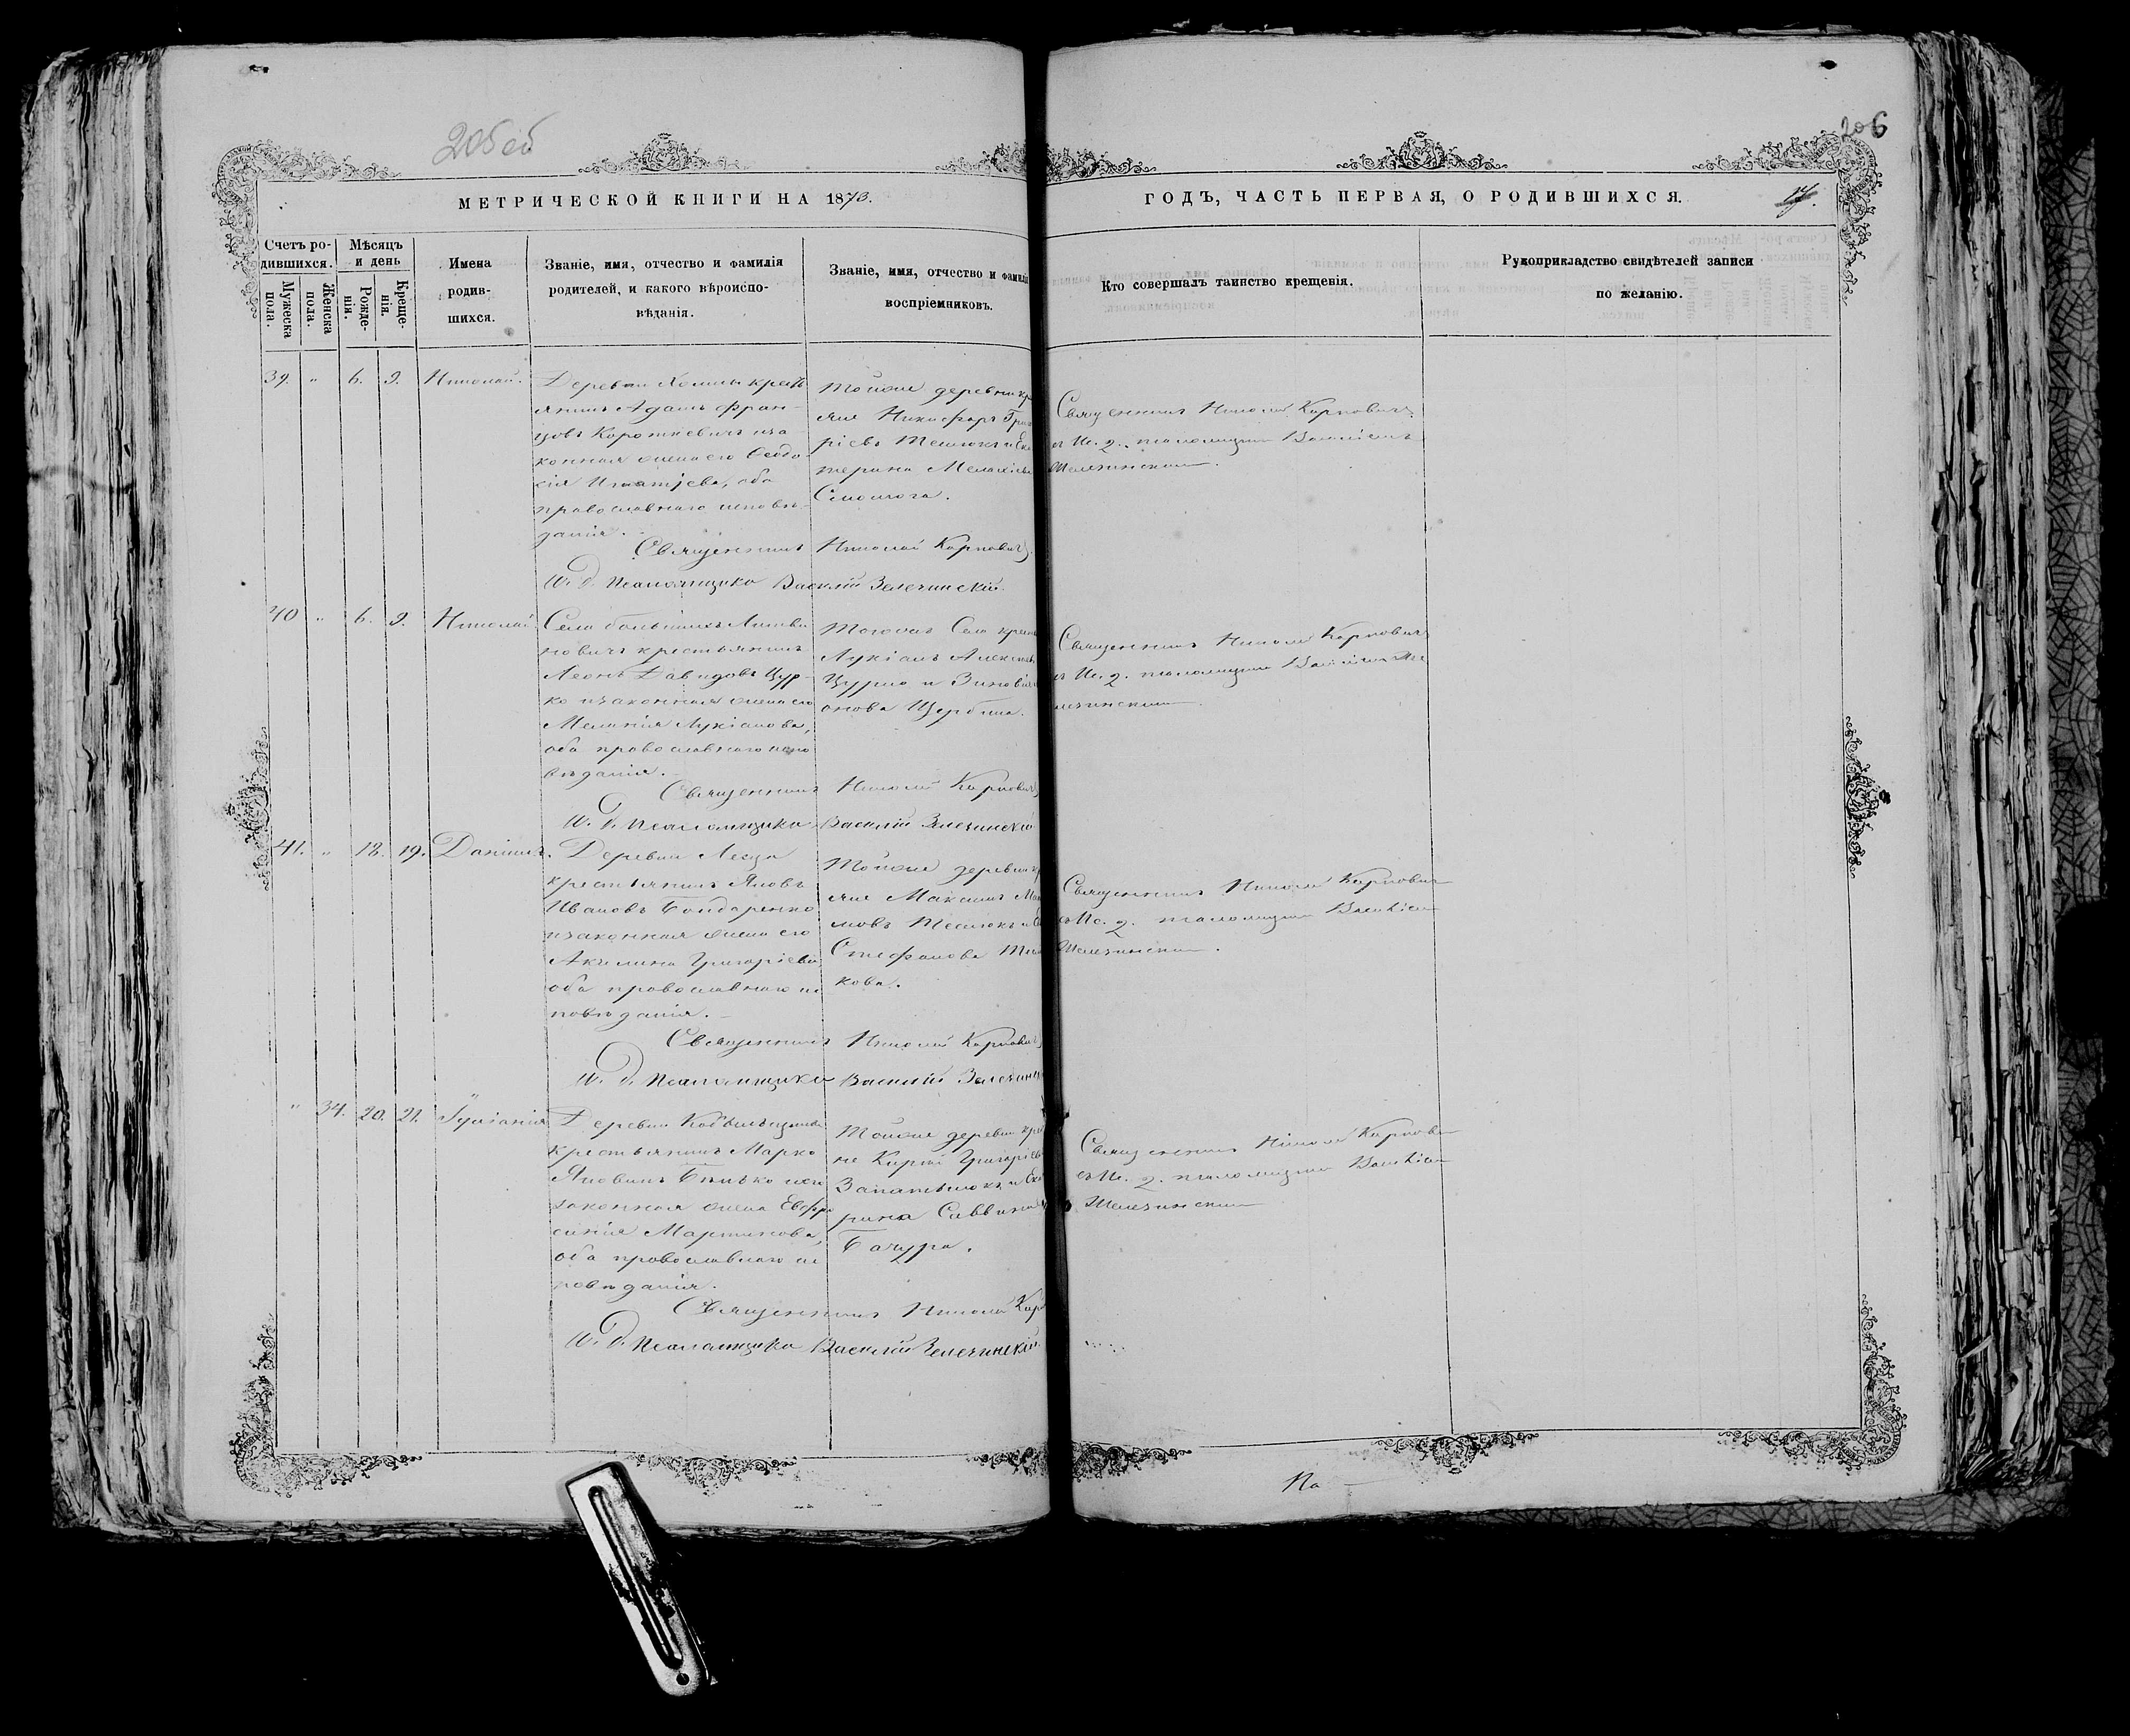 205 об
206
МЕТРИЧЕСКОЙ КНИГИ НА 1873.
ГОДЪ, ЧАСТЬ ПЕРВАЯ, О РОДИВШИХСЯ.
Счетъ родившихся.
Мужеска пола.
Женска пола.
Мѣсяцъ и день
Рожденія.
Крещенія.
Имена
родив-
шихся.
Званіе, имя, отчество и фамилія
родителей, и какого вѣроиспо-
вѣданія.
Званіе, имя, отчество и фамилія
воспріемниковъ.
Кто совершалъ таинство крещенія.
Рукоприкладство свидѣтелей записи
по желанію.
39. " 6. 9. Николай.
Деревни крестъ
янинъ Адамъ Фран-
цовъ Короткевичъ иза
конная жена его Ѳеодо
сія Игнатіева, оба
православнаго исповѣ-
данія.
Тойже деревни кр
яне Никифоръ Григ
ріевъ Тешлюкъ и Ека
терина
Священникъ Николай Карповичъ
съ И. д. псаломщика Василіемъ
Зелезинскимъ.
Священникъ Николай Карповичъ
И. д. Псаломщика Василій Зелезинскій.
40 " 6. 9. Николай.
Села большихъ Литви
новичъ крестьянинъ
Леонъ Давидовъ Цур-
ко изаконная жена его
Меланія Лукіанова,
оба православнаго испо
вѣданія.
Тогожъ Села крест
Лукіанъ
Цурко и Зиновія
онова Щербина.
Священникъ Николай Карповичъ
съ И. д. псаломщика Василіемъ Зе
лезинскимъ.
Священникъ Николай Карповичъ
И. д. Псаломщика Василій Зелезинскій
41. " 18. 19. Даніилъ.
Деревни
крестьянинъ Яковъ
Ивановъ Бондаренко
изаконная жена его
Акилина Григоріева
оба православнаго ис
повѣданія.
Тойже деревни кр
яне Максимъ
мовъ Тешлюкъ и
Стефанова
кова.
Священникъ Николай Карповичъ
съ И. д. псаломщика Василіемъ
Зелезинскимъ.
Священникъ Николай Карповичъ
И. д. Псаломщика Василій Зелезин
" 34. 20. 21. Іуліанія
Деревни
крестьянинъ Марко
Яковинъ Бѣлько иза
конная жена Евфро
синія Мартинова,
оба православнаго ис
повѣданія.
Тойже деревни крес
не Григоріев
и Ека
рина Саввина
Бачура.
Священникъ Николай Карпович
съ И. д. псаломщика Василіем
Зелезинскимъ
Священникъ Николай Карп
И. д. Псаломщика Василій Зелезинскій
По